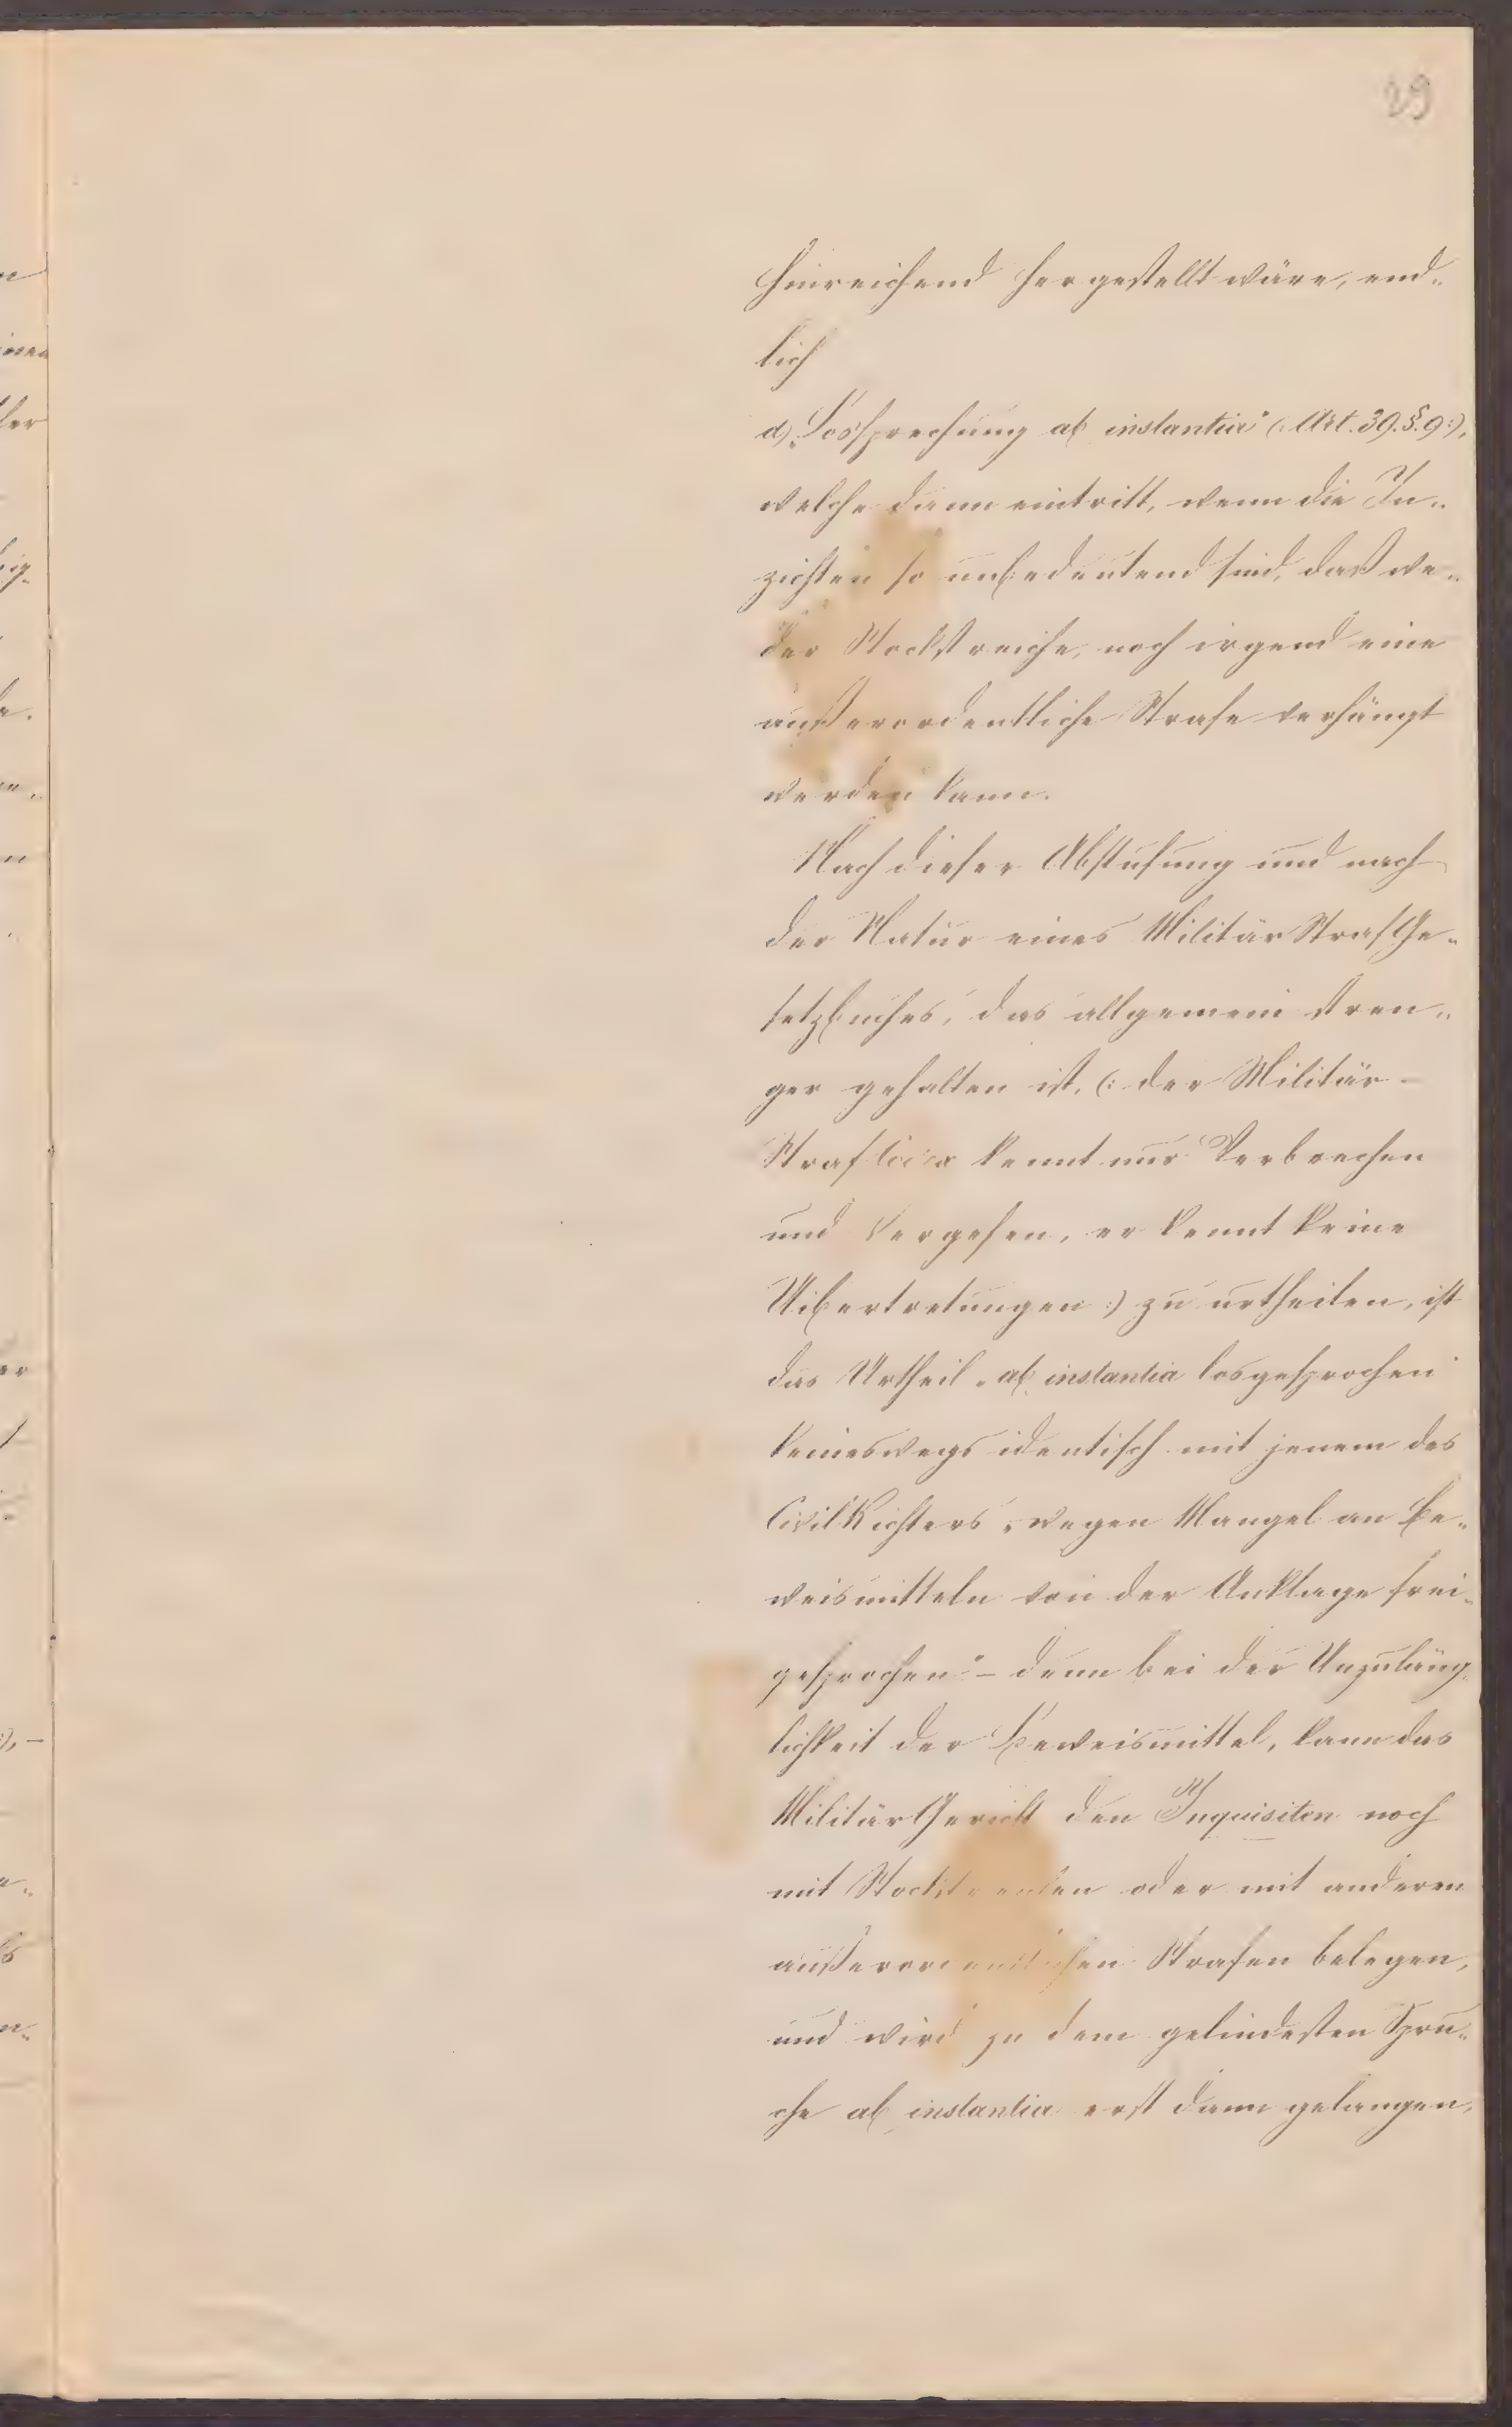 29
hinreichend hergestellt wäre, end„
lich
d) „Lossprechung ab instantia“ (: Art. 39. §. 9 :),
welche dann eintritt, wenn die In„
zichten so unbedeutend sind, daß we„
der Stockstreiche, noch irgend eine
außerordentliche Strafe verhängt
werden kann.
Nach dieser Abstufung und nach
der Natur eines Militär StrafGe„
setzbuches, das allgemein stren„
ger gehalten ist, (: der Militär-
Straf Codex kennt nur Verbrechen
und Vergehen, er kennt keine
Uibertretungen :) zu urtheilen, ist
das Urtheil „ab instantia losgesprochen“
keineswegs identisch mit jenem des
CivilRichters „wegen Mangel an Be„
weismitteln von der Anklage frei„
gesprochen“ – denn bei der Unzuläng„
lichkeit der Beweismittel, kann das
MilitärGericht den Inquisiten noch
mit Stockstreichen oder mit anderen
außerordentlichen Strafen belegen,
und wird zu dem gelindesten Spru„
che ab instantia erst dann gelangen,